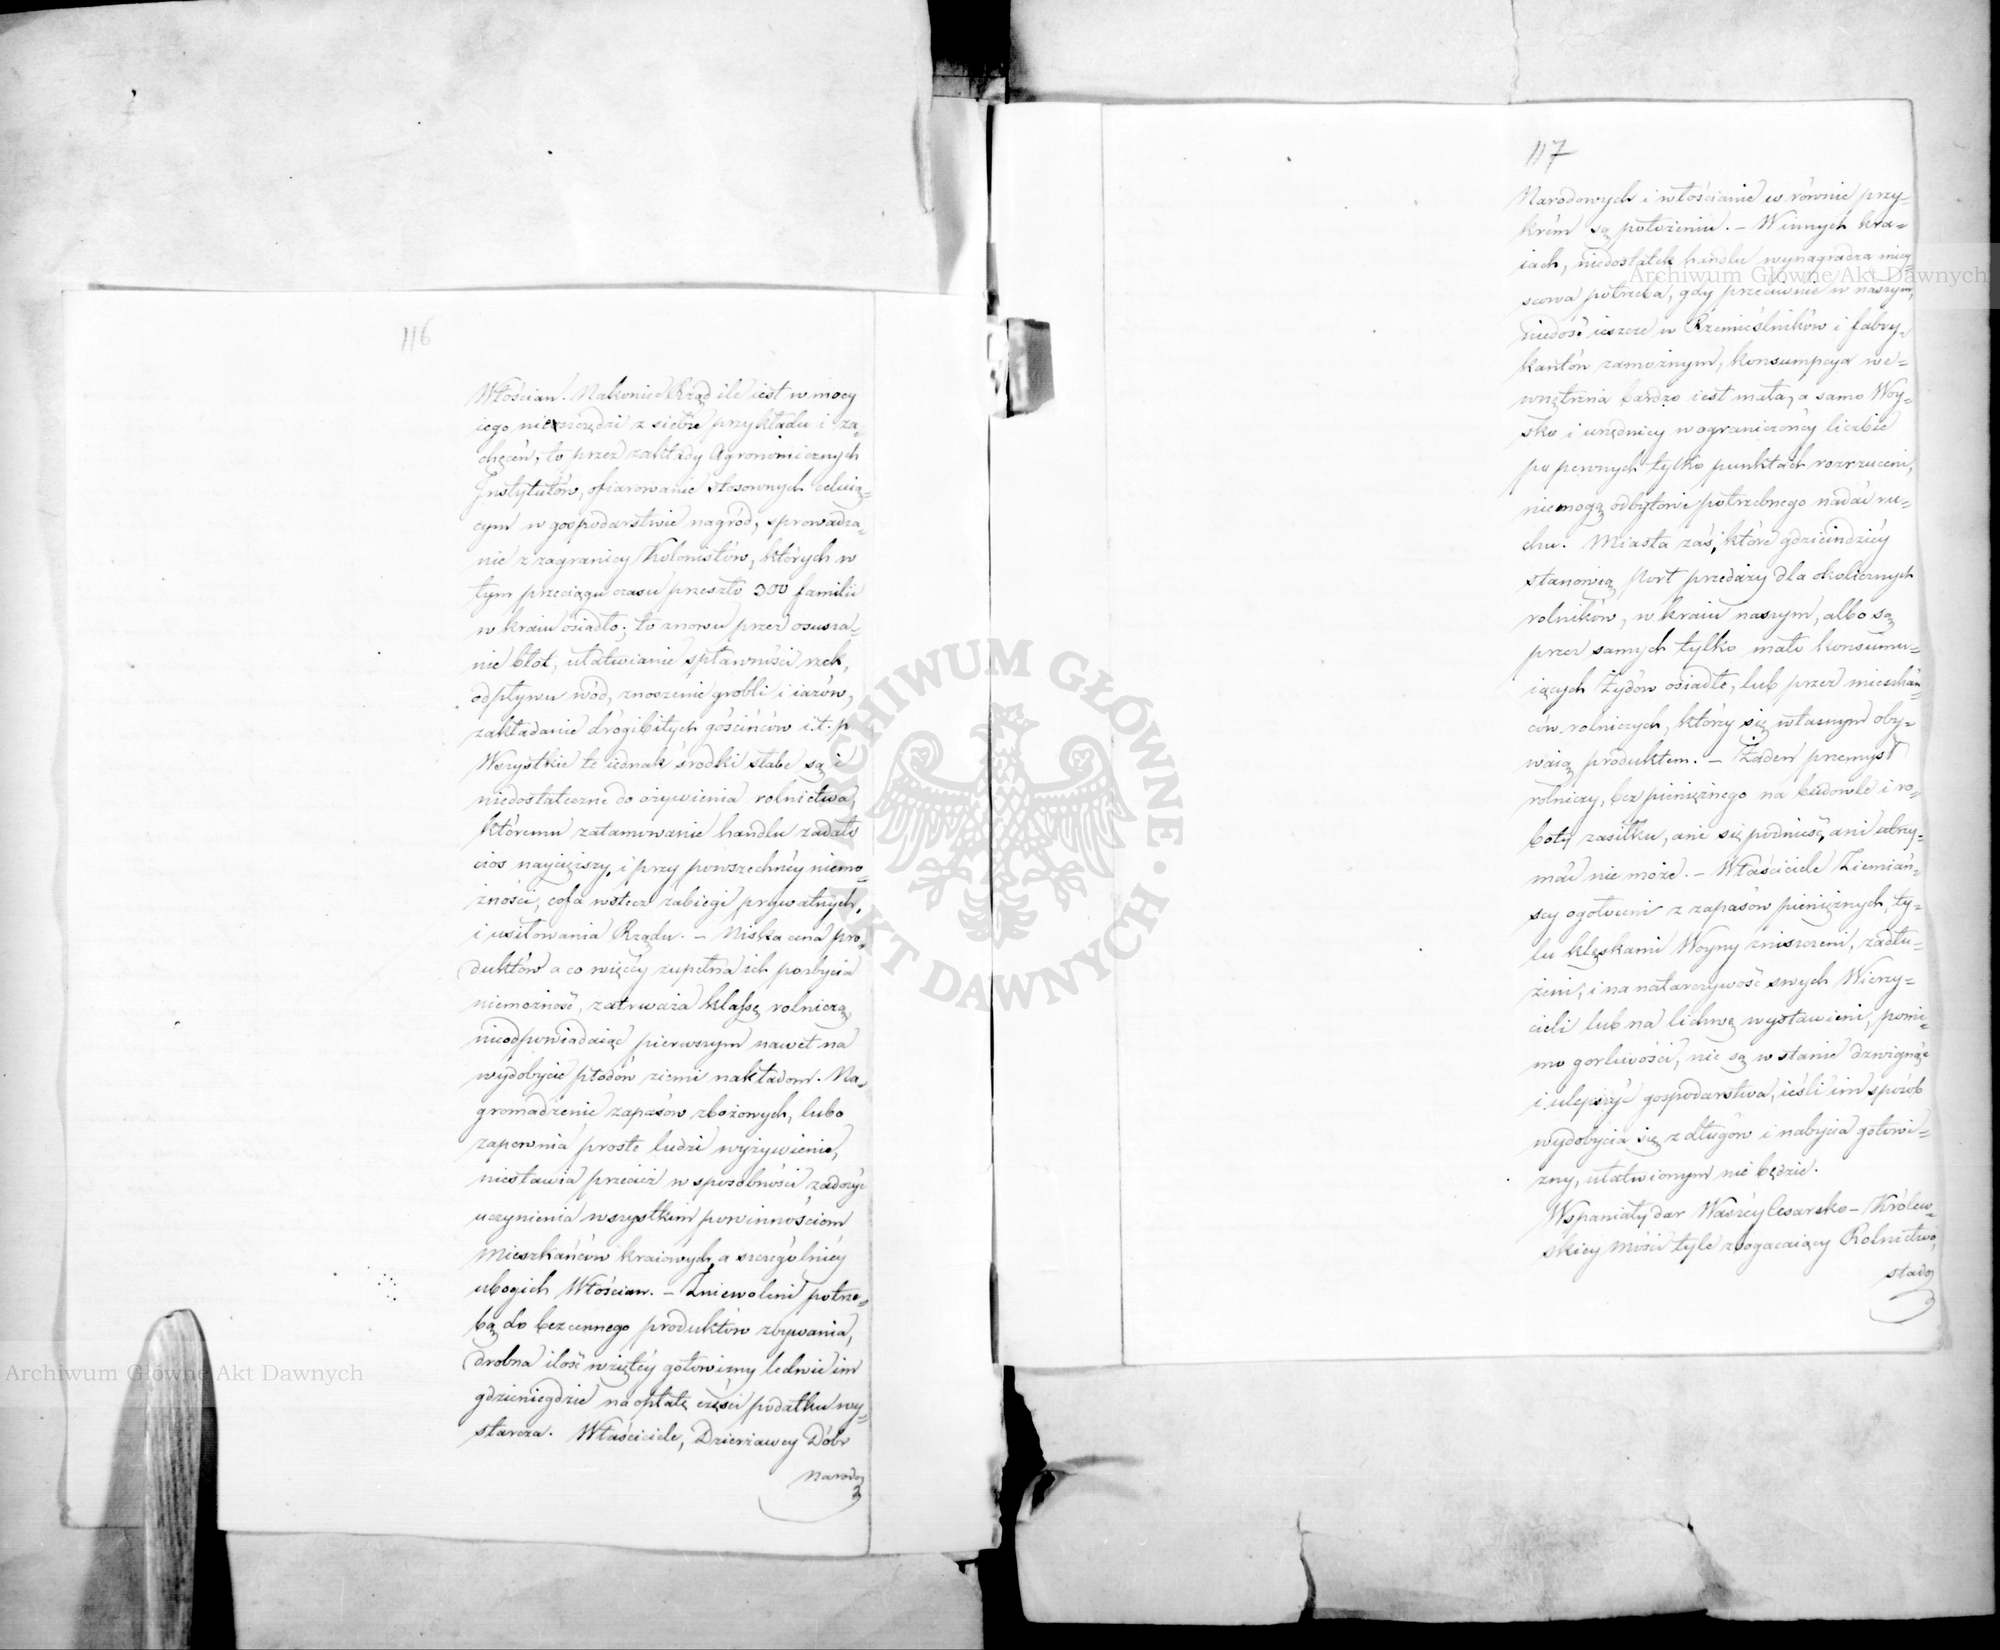 116
Włościan. Nakoniec Rząd ile iest w mocy
iego nieszczędzi z siebie przykładu i za„
chęceń, to przez zakłady Agronomicznych
Instytutów, ofiarowanie stosownych celuią„
cym w gospodarstwie nagród, sprowadza„
nie z zagranicy Kolonistów, których w
tym przeciągu czasu przeszło 300 familii
w kraiu osiadło; to znowu przez osusza„
nie błot, ułatwianie spławności rzek,
odpływu wód, znoszenie grobli i iazów,
zakładanie dróg bitych gościńców i.t.p
Wszystkie te iednak środki słabe są i
niedostateczne do ożywienia rolnictwa,
któremu zatamowanie handlu zadało
cios naycięższy, i przy powszechney niemo„
żności, cofa wstecz zabiegi prywatnych,
i usiłowania Rządu. – Niska cena pro„
duktów a co więcéy zupełna ich pozbycia
niemożność, zatrważa klassę rolniczą,
nieodpowiadaiąc pierwszym nawet na
wydobycie płodów ziemi nakładom. Na„
gromadzenie zapasów zbożowych, lubo
zapewnia proste ludzi wyżywienie,
niestawia przecież w sposobności zadosyć
uczynienia wszystkim powinnościom
Mieszkańców kraiowych, a szczególniéy
ubogich Włościan. – Zniewoleni potrze„
bą do bezcennego produktów zbywania,
drobna ilość wziętéy gotowizny ledwie im
gdzieniegdzie na opłatę części podatku wy„
starcza. Właściciele, Dzierżawcy Dóbr
Narodo„
117
Narodowych i włościanie w równie przy„
krém są położeniu. – W innych kra„
iach, niedostatek handlu wynagradza miey„
scowa potrzeba, gdy przeciwnie w naszym,
niedość ieszcze w Rzemieślników i fabry„
kantów zamożnym, konsumpcya we„
wnętrzna bardzo iest mała, a samo Woy„
sko i urzędnicy w ograniczonéy liczbie
po pewnych tylko punktach rozrzuceni,
niemogą odbytowi potrzebnego nadać ru„
chu. Miasta zaś, które gdzieindziéy
stanowią Port przedaży dla okolicznych
rolników, w kraiu naszym, albo są
przez samych tylko mało konsumu„
iących Żydów osiadłe, lub przez mieszkań„
ców rolniczych, którzy się własnym oby„
waią produktem. – Żaden przemysł
rolniczy, bez pieniężnego na budowle i ro„
boty zasiłku, ani się podnieść, ani utrzy„
mać nie może. – Właściciele Ziemiań„
scy ogołoceni z zapasów pieniężnych, ty„
lu klęskami Woyny zniszczeni, zadłu„
żeni, i na natarczywość swych Wierzy„
cieli lub na lichwę wystawieni, pomi„
mo gorliwości, nie są w stanie dzwignąć
i ulepszyć gospodarstwa, ieśli im sposób
wydobycia się z długów i nabycia gotowi„
zny, ułatwionym nie będzie.
Wspaniały dar Waszéy Cesarsko – Królew„
skiey Mości tyle zbogacaiący Rolnictwo,
stado
ARCHIWUM GŁÓWNE · AKT DAWNYCH ·
Archiwum Główne Akt Dawnych
Archiwum Główne Akt Dawnych